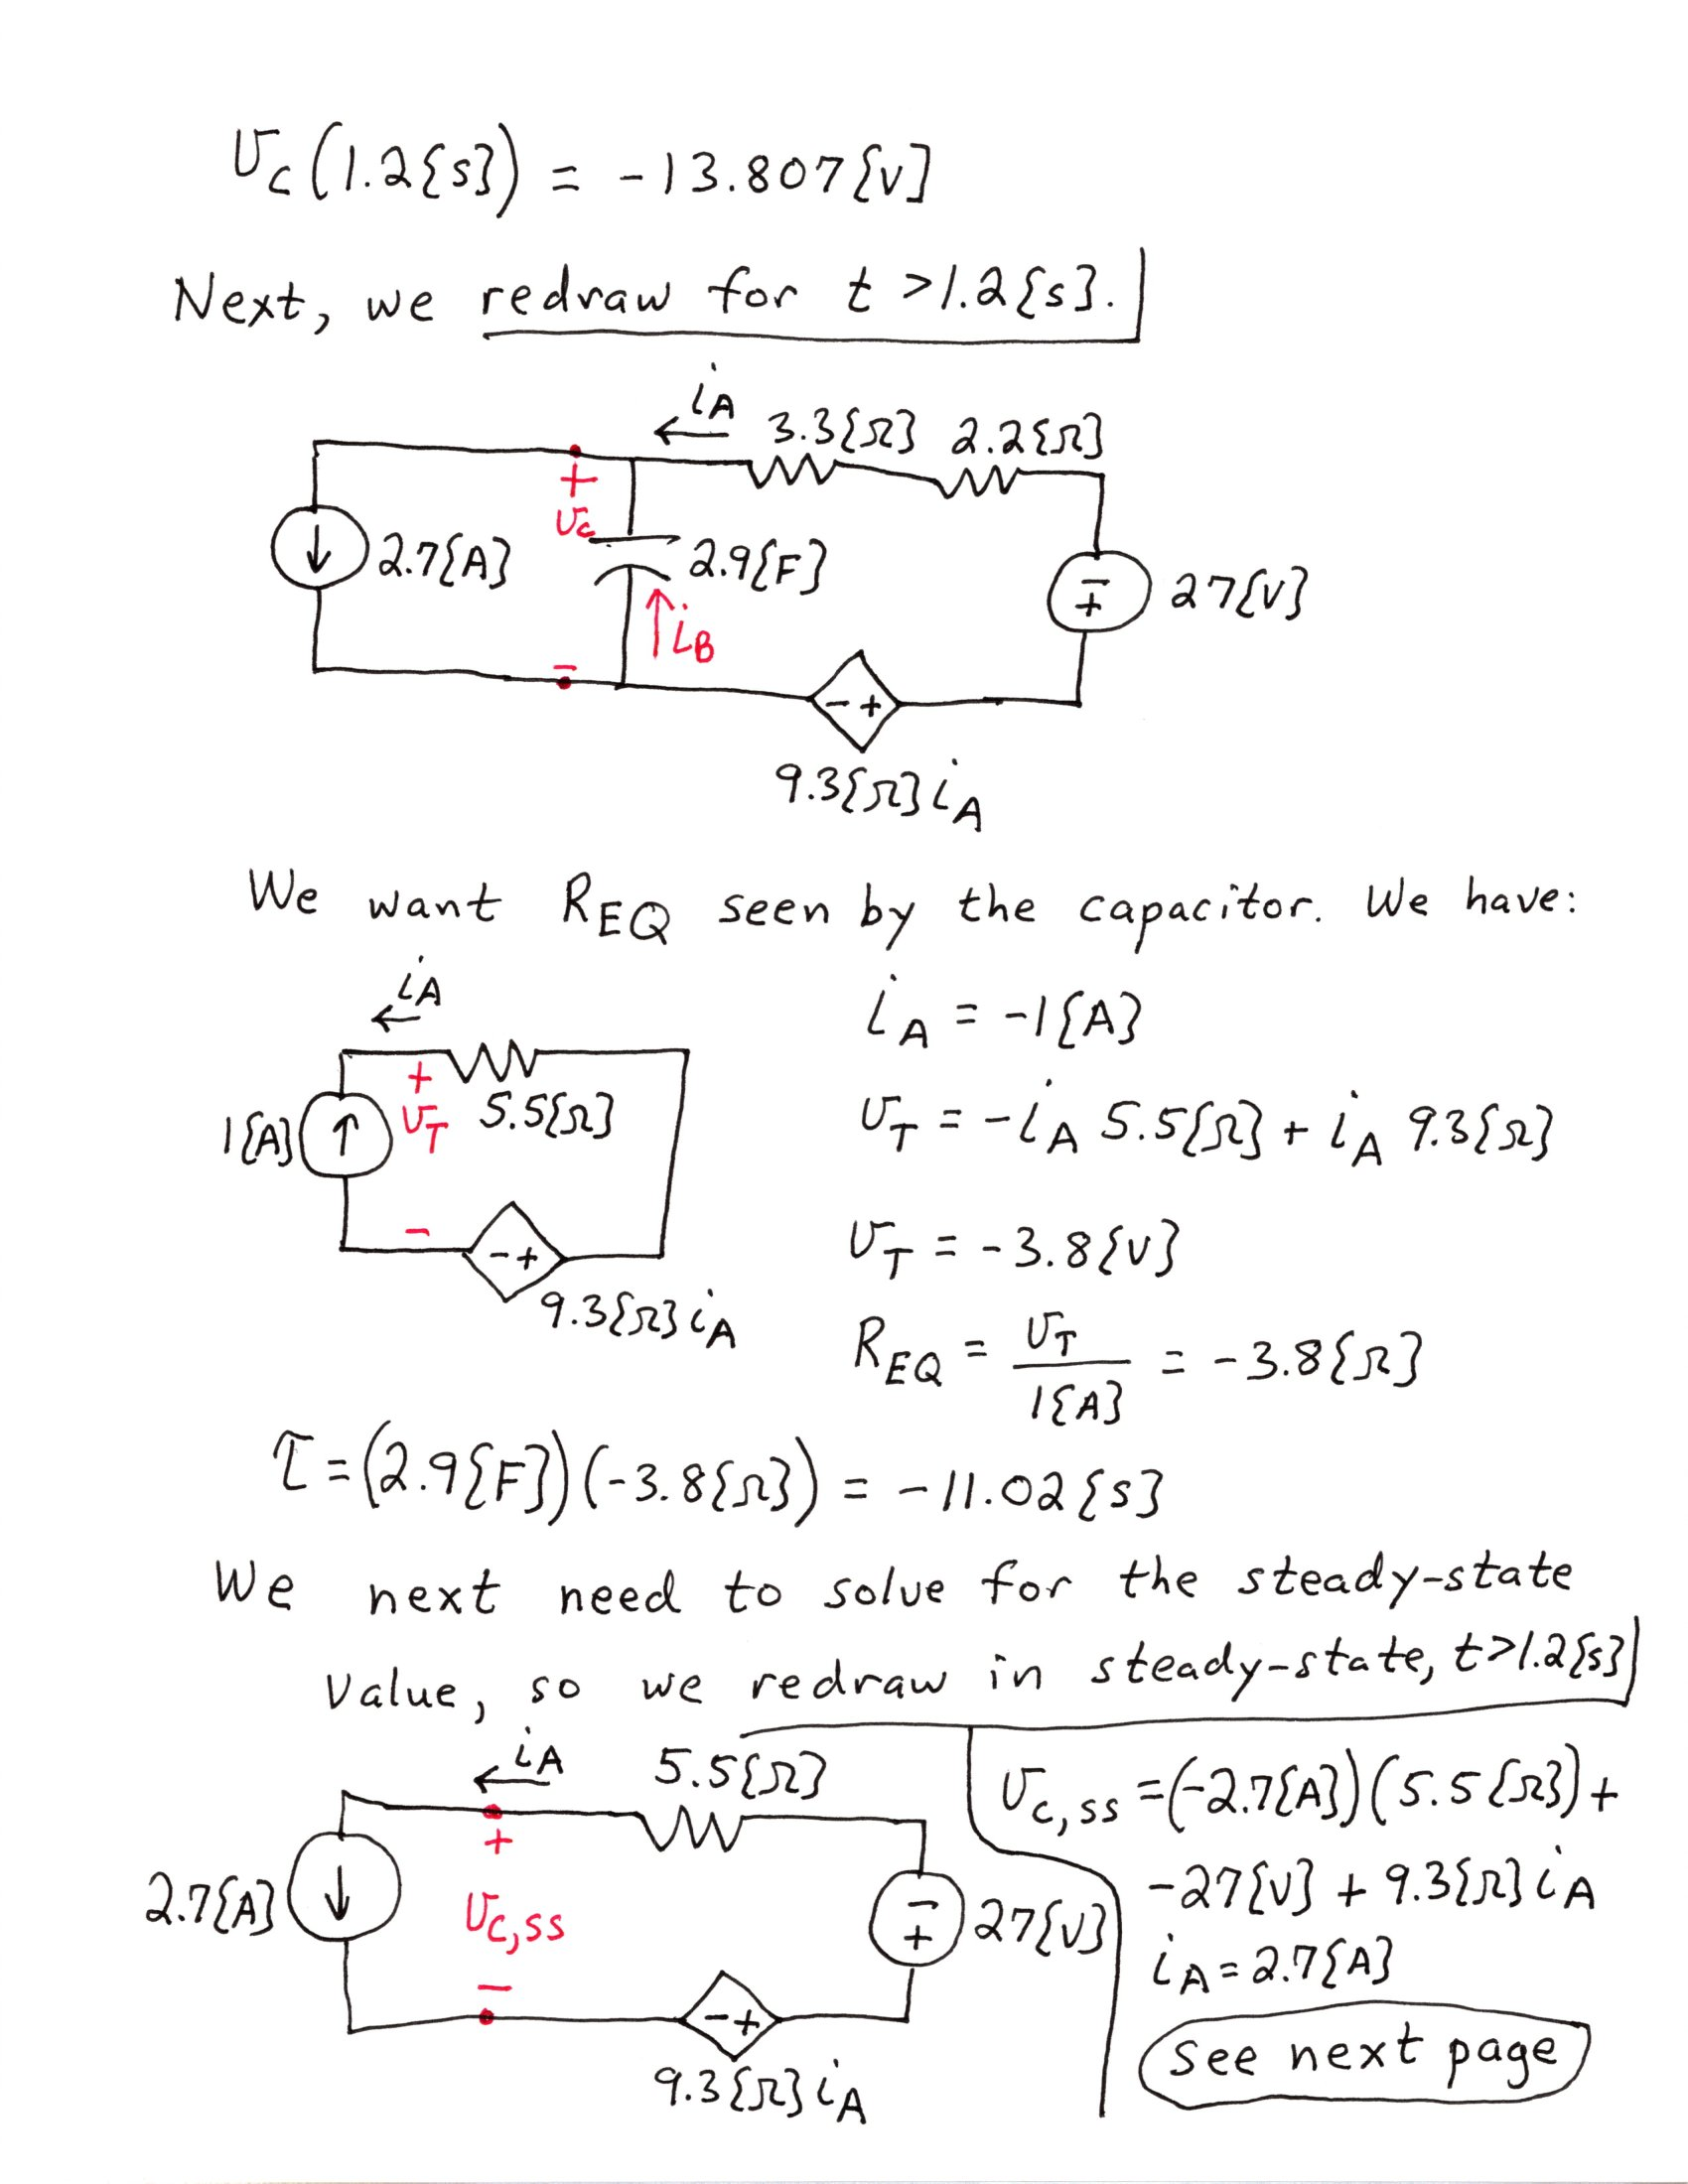 v_C(1.2{s}) = -13.807{V}
Next, we redraw for t > 1.2{s}.
i_A
3.3{Ω} 2.2{Ω}
+
v_C
2.7{A}
2.9{F}
- +
27{V}
i_B
-
- +
9.3{Ω} i_A
We want R_EQ seen by the capacitor. We have:
i_A
i_A = -1{A}
+
v_T
-
1{A}
5.5{Ω}
v_T = -i_A 5.5{Ω} + i_A 9.3{Ω}
- +
9.3{Ω} i_A
v_T = -3.8{V}
R_EQ = v_T / 1{A} = -3.8{Ω}
τ = (2.9{F})(-3.8{Ω}) = -11.02{s}
We next need to solve for the steady-state
value, so we redraw in steady-state, t > 1.2{s}
i_A
5.5{Ω}
+
v_C,ss
-
2.7{A}
- +
27{V}
- +
9.3{Ω} i_A
v_C,ss = (-2.7{A})(5.5{Ω}) +
-27{V} + 9.3{Ω} i_A
i_A = 2.7{A}
see next page